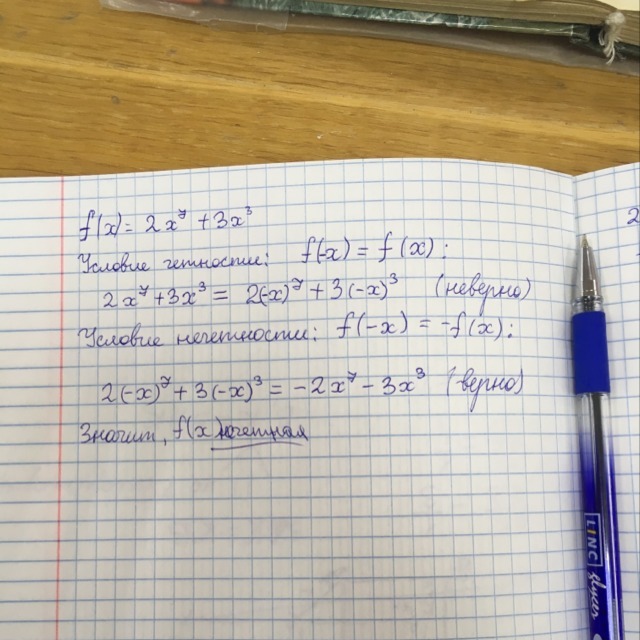 f(x) = 2x⁷ + 3x³
Условие четности: f(-x) = f(x):
2x⁷ + 3x³ = 2(-x)⁷ + 3(-x)³ (неверно)
Условие нечетности: f(-x) = -f(x):
2(-x)⁷ + 3(-x)³ = -2x⁷ - 3x³ (верно)
Значит, f(x) нечетная
2
LINC